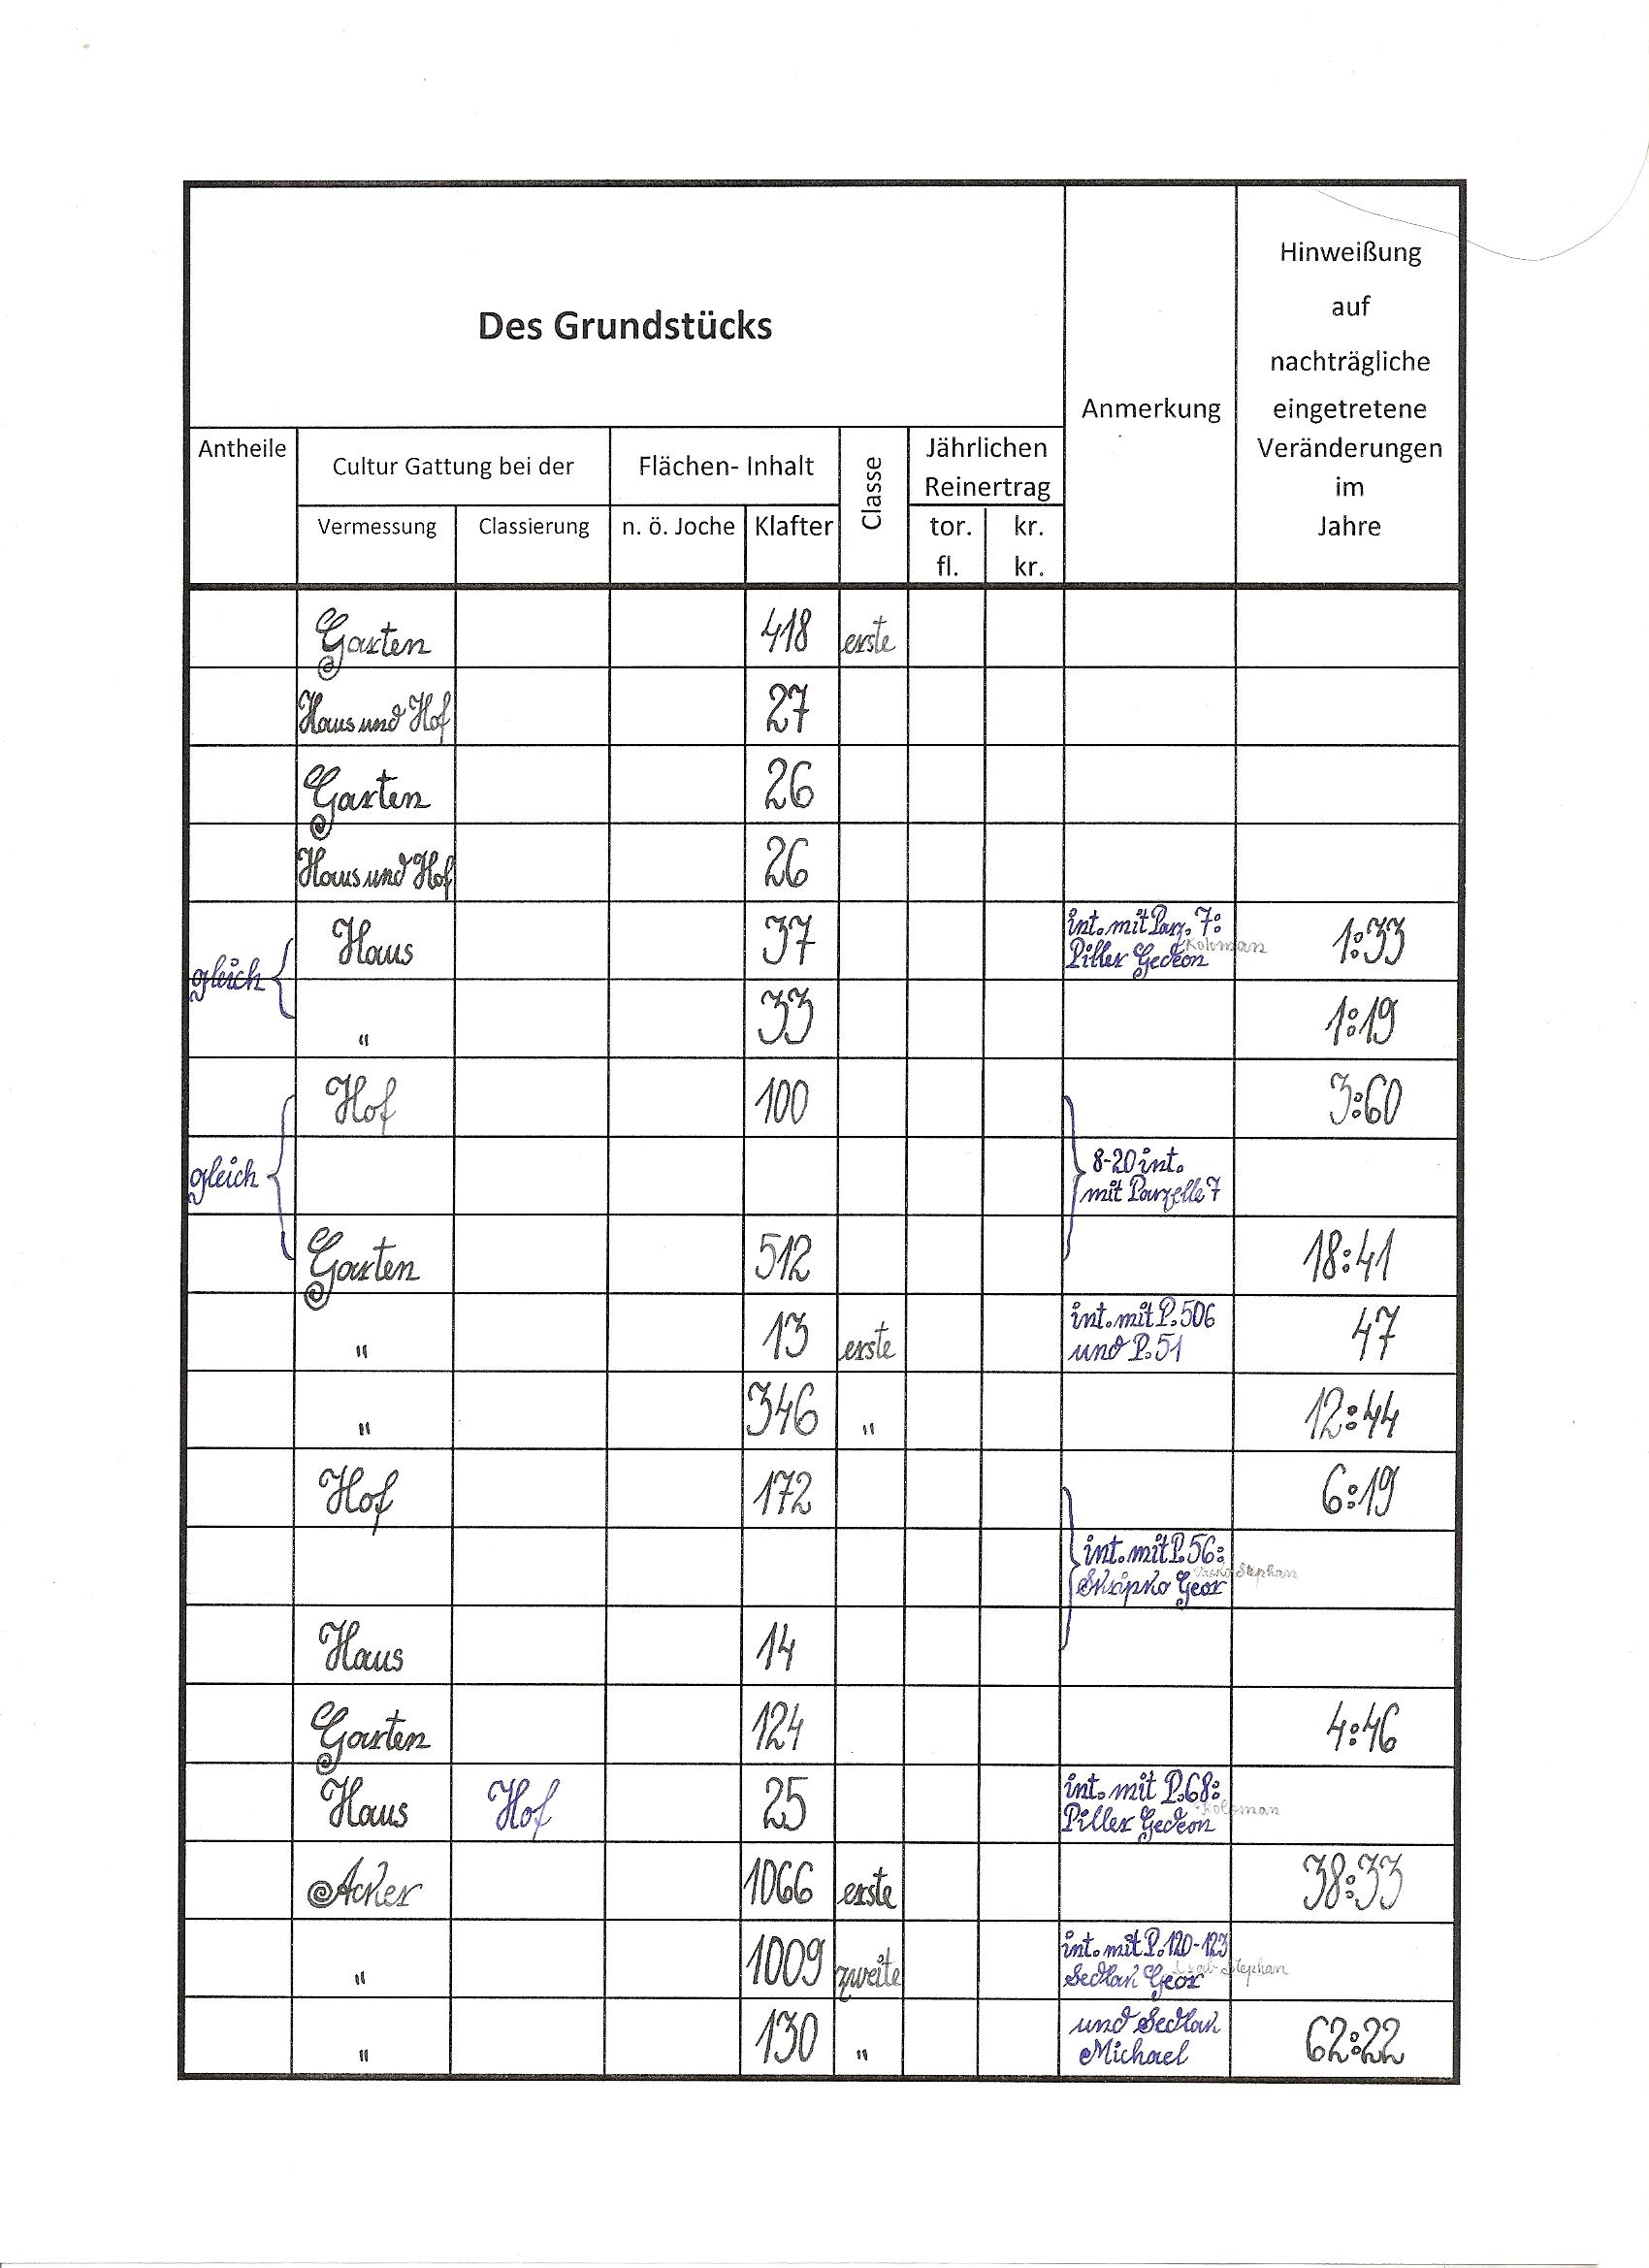 Des Grundstücks
Anmerkung
Hinweißung
auf
nachträgliche
eingetretene
Veränderungen
im
Jahre
Antheile
Cultur Gattung bei der
Flächen- Inhalt
Classe
Jährlichen
Reinertrag
Vermessung Classierung n. ö. Joche Klafter tor. kr.
fl. kr.
Garten 418 erste
Haus und Hof 27
Garten 26
Haus und Hof 26
gleich
Haus 37 int. mit Parz. 7: 1:33
Koloman
Piller Gedeon
" 33 1:19
Hof 100 3:60
gleich
8-20 int.
mit Parzelle 7
Garten 512 18:41
" 13 erste int. mit P. 506 47
und P. 51
" 346 " 12:44
Hof 172 6:19
int. mit P. 56:
Stephan
Skripko Geor
Haus 14
Garten 124 4:46
Haus Hof 25 int. mit P. 68:
Koloman
Piller Gedeon
Acker 1066 erste 38:33
" 1009 zweite int. mit P. 120-123
Stephan
Sedlak Geor
" 130 " und Sedlak 62:22
Michael